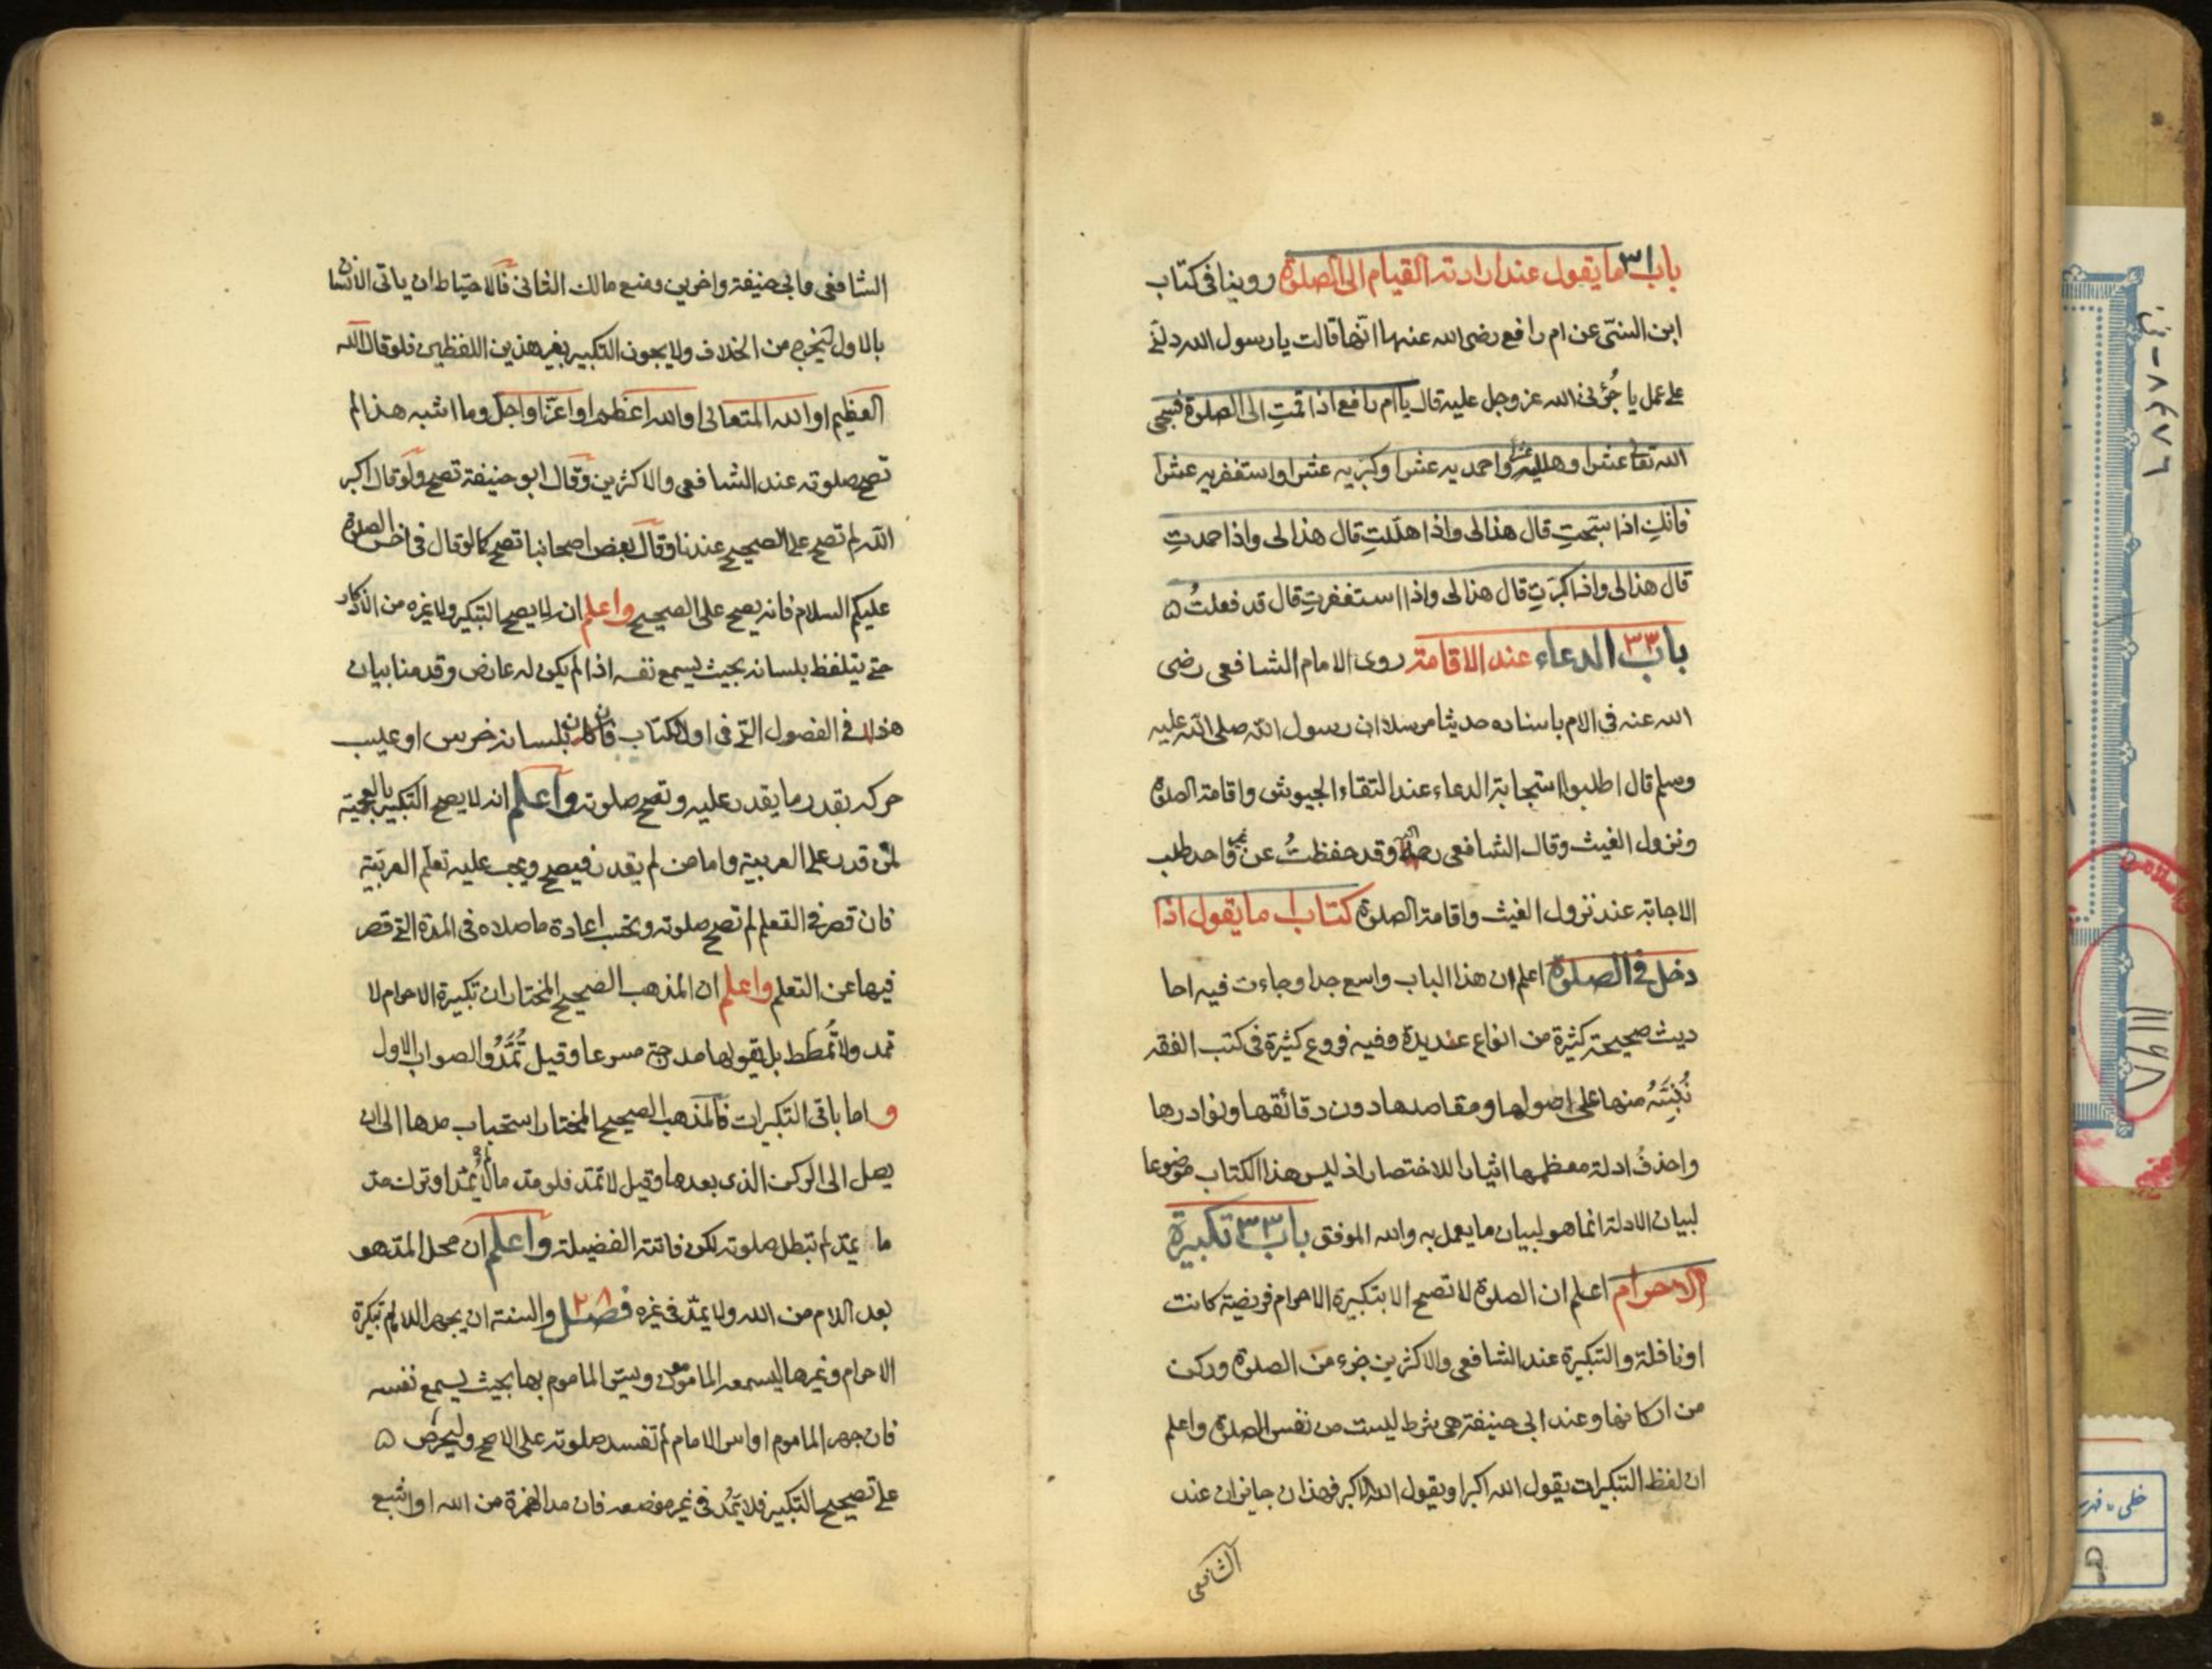 باب ٣١ ما يقول عند ارادته القيام الى الصلوة روينا فى كتاب
ابن السنّى عن ام رافع رضى الله عنها انّها قالت يا رسول الله دلّنى
على عمل ياجُرُنى الله عز وجل عليه قال يا ام رافع اذا قمتِ الى الصلوة فسبحى
الله تعالى عشرا وهلليه عشرا واحمديه عشرا وكبريه عشرا واستغفريه عشرا
فانكِ اذا سبّحتِ قال هذا لى واذا هلّلتِ قال هذا لى واذا حمدتِ
قال هذا لى واذا كبّرتِ قال هذا لى واذا استغفرتِ قال قد فعلتُ ۵
باب ٣٢ الدعاء عند الاقامة روى الامام الشافعى رضى
الله عنه فى الام باسناده حديثا مرسلا ان رسول الله صلى الله عليه
وسلم قال اطلبوا استجابة الدعاء عند التقاء الجيوش واقامة الصلوة
ونزول الغيث وقال الشافعى وقد حفظتُ عن غير واحد طلب
الاجابة عند نزول الغيث واقامة الصلوة كتاب ما يقول اذا
دخل فى الصلوة اعلم ان هذا الباب واسع جدا وجاءت فيه احا
ديث صحيحة كثيرة من انواع عديدة وفيه فروع كثيرة فى كتب الفقه
نُنَبِّهُ منها على اصولها ومقاصدها دون دقائقها ونوادرها
واحذفُ ادلة معظمها ايثارا للاختصار اذ ليس هذا الكتاب موضوعا
لبيان الادلة انما هو لبيان ما يعمل به والله الموفق باب ٣٣ تكبيرة
الاحرام اعلم ان الصلوة لا تصح الا بتكبيرة الاحرام فريضة كانت
او نافلة والتكبيرة عند الشافعى والاكثرين جزء من الصلوة وركن
من اركانها وعند ابى حنيفة هى شرط ليست من نفس الصلوة واعلم
ان لفظ التكبيرات يقول الله اكبر او يقول الله الاكبر فهذان جايزان عند
الشافعى
الشافعى وابى حنيفة واخرين ومنع مالك الثانى فالاحتياط ان ياتى الانسان
بالاول ليخرج من الخلاف ولا يجوز التكبير بغير هذين اللفظين فلو قال الله
العظيم او الله المتعالى او الله اعظم او اعزّ او اجلّ وما اشبه هذا لم
تصح صلوته عند الشافعى والاكثرين وقال ابو حنيفة تصح ولو قال اكبر
الله لم تصح على الصحيح عندنا وقال بعض اصحابنا تصح كما لو قال فى اخر الصلوة
عليكم السلام فانه يصح على الصحيح واعلم انه لا يصح التكبير ولا غيره من الاذكار
حتى يتلفظ بلسانه بحيث يسمع نفسه اذا لم يكن له عارض وقد منا بيان
هذا فى الفصول التى فى اول الكتاب فان كان بلسانه خرس او عيب
حركه بقدر ما يقدر عليه وتصح صلوته واعلم انه لا يصح التكبير بالعجمية
لمن قدر على العربية واما من لم يقدر فيصح ويجب عليه تعلّم العربية
فان قصر فى التعلم لم تصح صلوته وتجب اعادة ما صلاه فى المدة التى قصر
فيها عن التعلم واعلم ان المذهب الصحيح المختار ان تكبيرة الاحرام لا
تمد ولا تُمطّط بل يقولها مدرجة مسرعا وقيل تُمَدُّ والصواب الاول
واما باقى التكبيرات فالمذهب الصحيح المختار استحباب مدها الى ان
يصل الى الركن الذى بعدها وقيل لا تمدّ فلو مدّ ما لا يُمدّ او ترك مدّ
ما يمدّ لم تبطل صلوته لكن فاتته الفضيلة واعلم ان محل المدّ هو
بعد اللام من الله ولا يمدّ فى غيره فصل ٢٨ والسنة ان يجهر الامام تكبيرة
الاحرام وغيرها ليسمعه الماموم ويسرّ الماموم بها بحيث يسمع نفسه
فان جهر الماموم او اسر الامام لم تفسد صلوته على الاصح وليحرص ۵
على تصحيح التكبير فلا يَمُدّ فى غير موضعه فان مد الهمزة من الله او اشبع